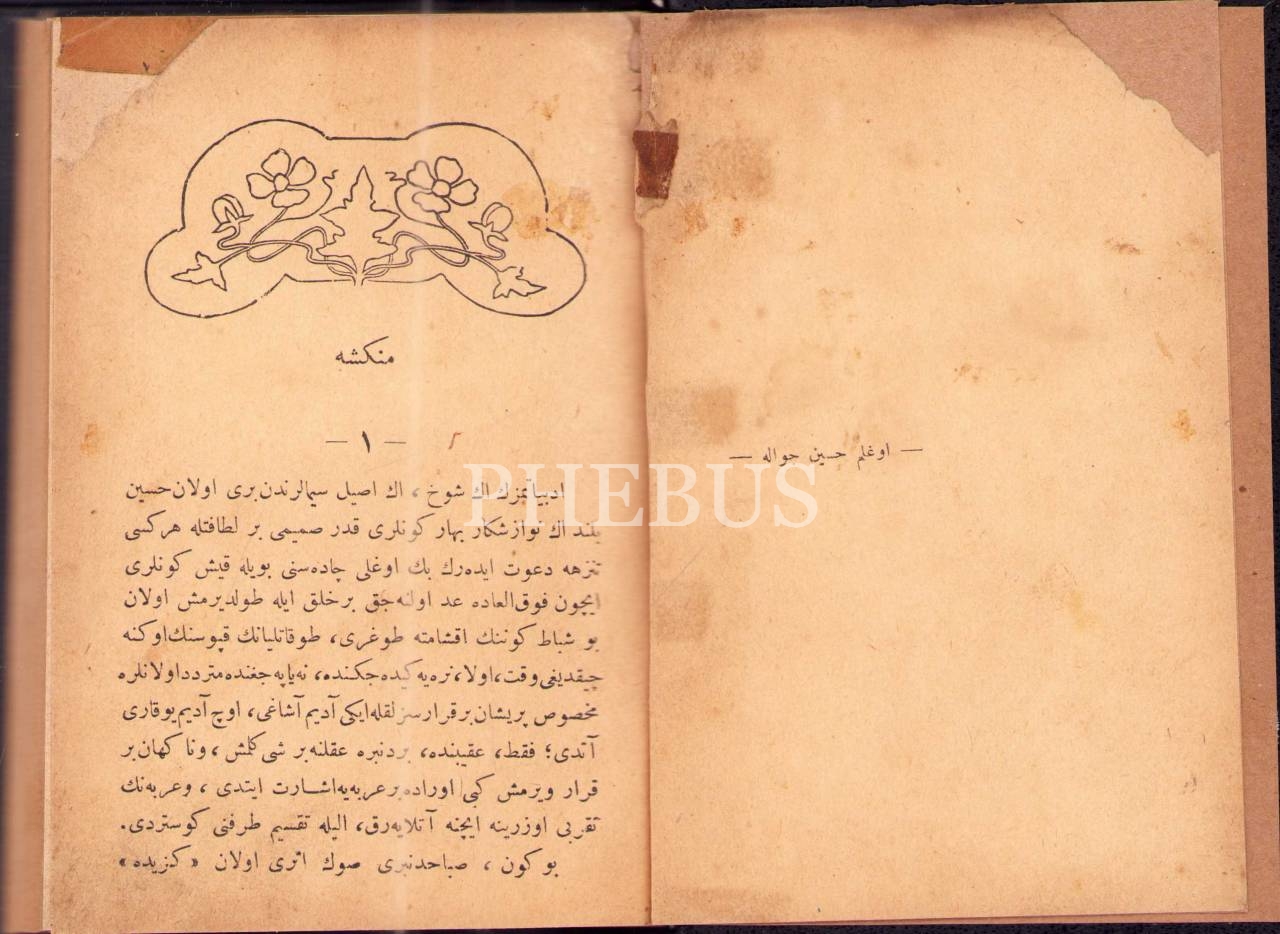 — اوغلم حسين جواله —
منكشه
— ١ —
٢
ادبياتمزك اك شوخ ، اك اصيل سيمالرندن برى اولان حسين
بلند اك نوازشكار بهار كونلرى قدر صميمى بر لطافتله هركسى
تنزهه دعوت ايده‌رك بك اوغلى جاده‌سنى بويله قيش كونلرى
ايچون فوق‌العاده عد اولنه‌جق بر خلق ايله طولديرمش اولان
بو شباط كوننك اقشامنه طوغرى، طوقاتليانك قپوسنك اوكنه
چيقديغى وقت، اولا، نره‌يه كيده‌جكنده، نه ياپه‌جغنده متردد اولانلره
مخصوص پريشان بر قرارسزلقله ايكى آديم آشاغى، اوچ آديم يوقارى
آتدى؛ فقط، عقبنده، بردنبره عقلنه بر شى كلمش، وناكهان بر
قرار ويرمش كبى اوراده بر عربه‌يه اشارت ايتدى ، وعربه‌نك
تقربى اوزرينه ايچنه آتلايه‌رق، اليله تقسيم طرفنى كوستردى.
بو كون ، صباحدنبرى صوك اثرى اولان « كزيده »
PHEBUS